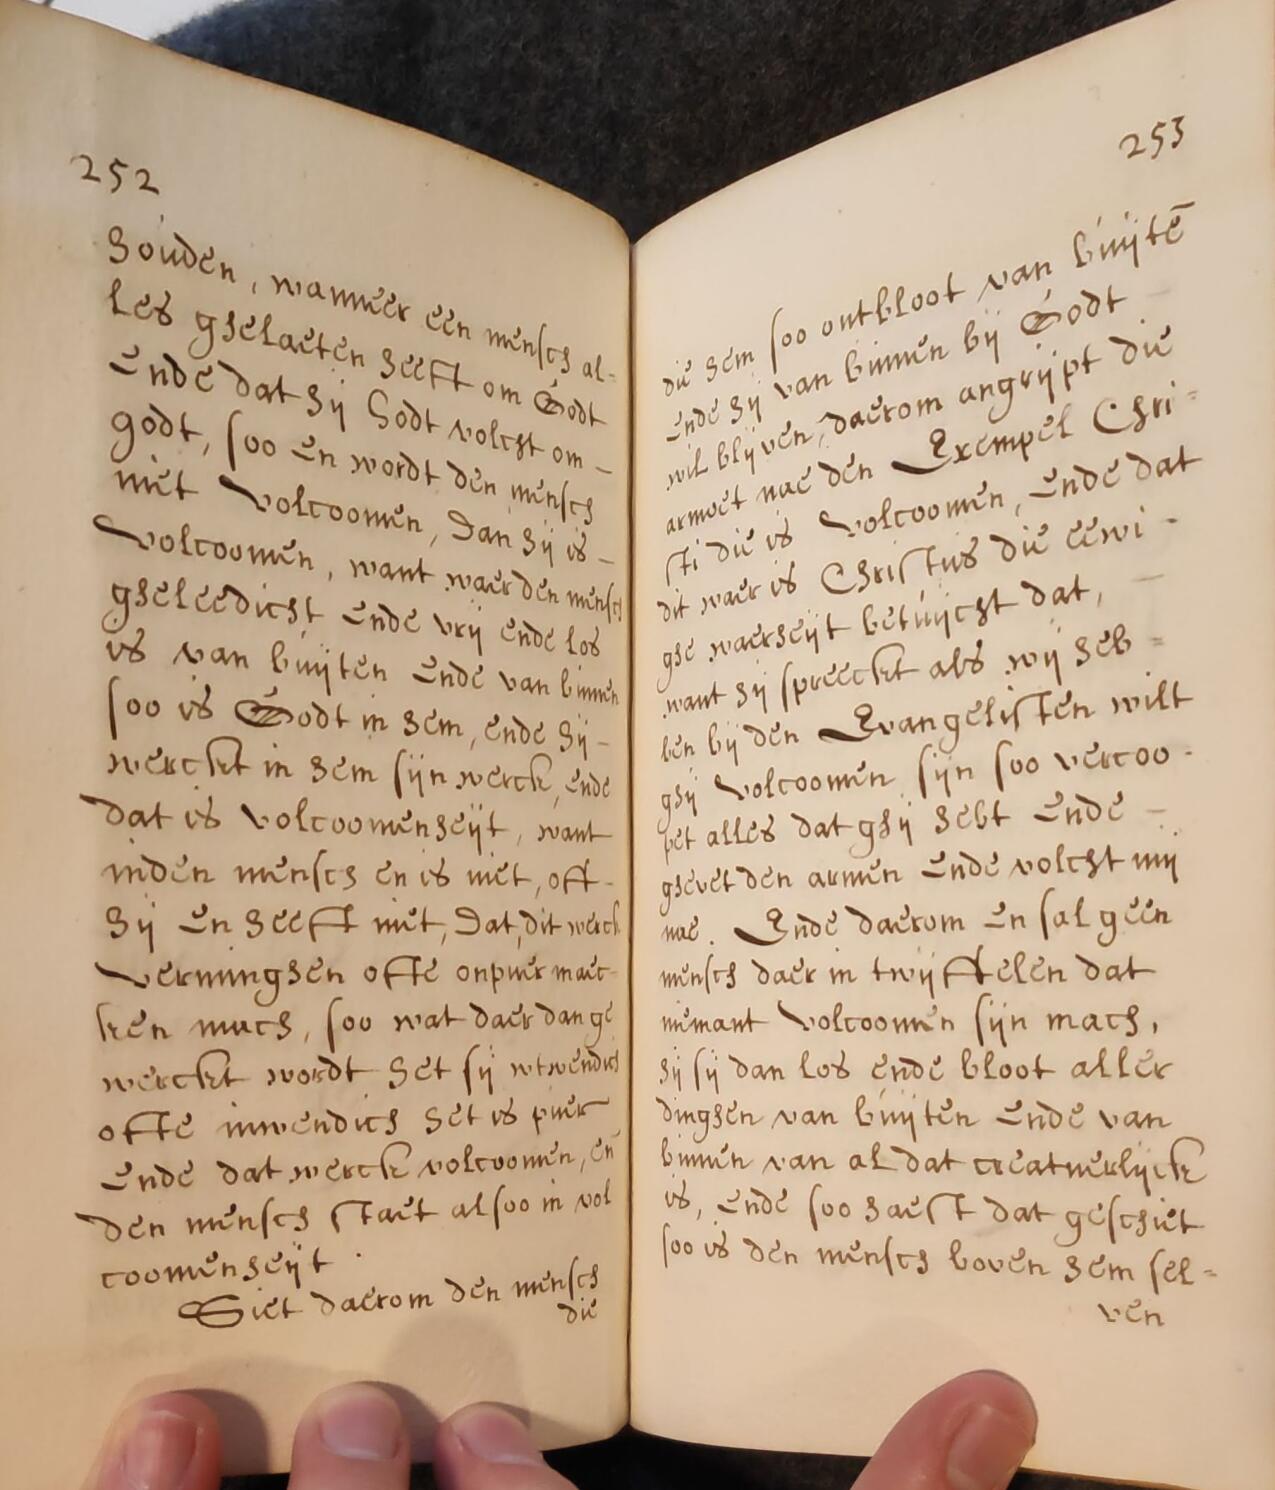 252
houden, wanneer een mensch al-
les ghelaeten heefft om Godt
ende dat hij Godt volcht om -
godt, soo en wordt den mensch
niet volcoomen, Dan hij is -
volcoomen, want waer den mensch
gheleedicht ende vrij ende los
is van buijten ende van binnen
soo is Godt in hem, ende hij -
werckt in hem sijn werck, ende
dat is volcoomenheijt, want
inden mensch en is niet, oft -
hij en heefft niet, Dat, dit werck
verminghen offte onpuer maec-
ken mach, soo wat daer dan ge
werckt wordt het sij wtwendich
offte inwendich het is puer
ende dat werck volcoomen, en̄
den mensch staet alsoo in vol
coomenheijt .
Siet daerom den mensch
die
253
die hem soo ontbloot van buijtē
ende hij van binnen bij Godt -
wil blijven, daerom angrijpt die
armoet nae den Exempel Chri-
sti die is volcoomen, ende dat
dit waer is Christus die eewi-
ghe waerheijt betuijcht dat, -
want hij spreeckt als wij heb=
ben bij den Evangelisten wilt
ghij volcoomen sijn soo vercoo-
pet alles dat ghij hebt ende -
ghevet den armen ende volcht mij
nae. Ende daerom en sal geen
mensch daer in twijffelen dat
niemant volcoomen sijn mach,
hij sij dan los ende bloot aller
dinghen van buijten ende van
binnen van al dat creatuerlijck
is, ende soo haest dat geschiet
soo is den mensch boven hem sel=
ven